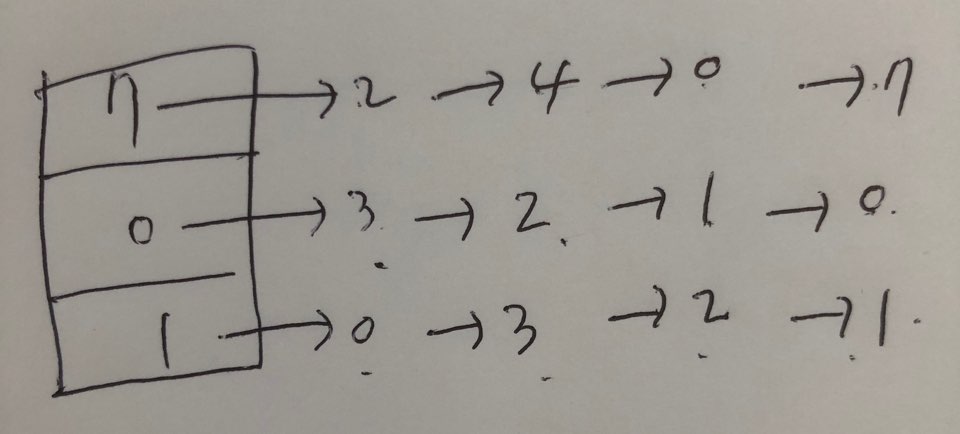 7 → 2 → 4 → 0 → 7
0 → 3 → 2 → 1 → 0
1 → 0 → 3 → 2 → 1